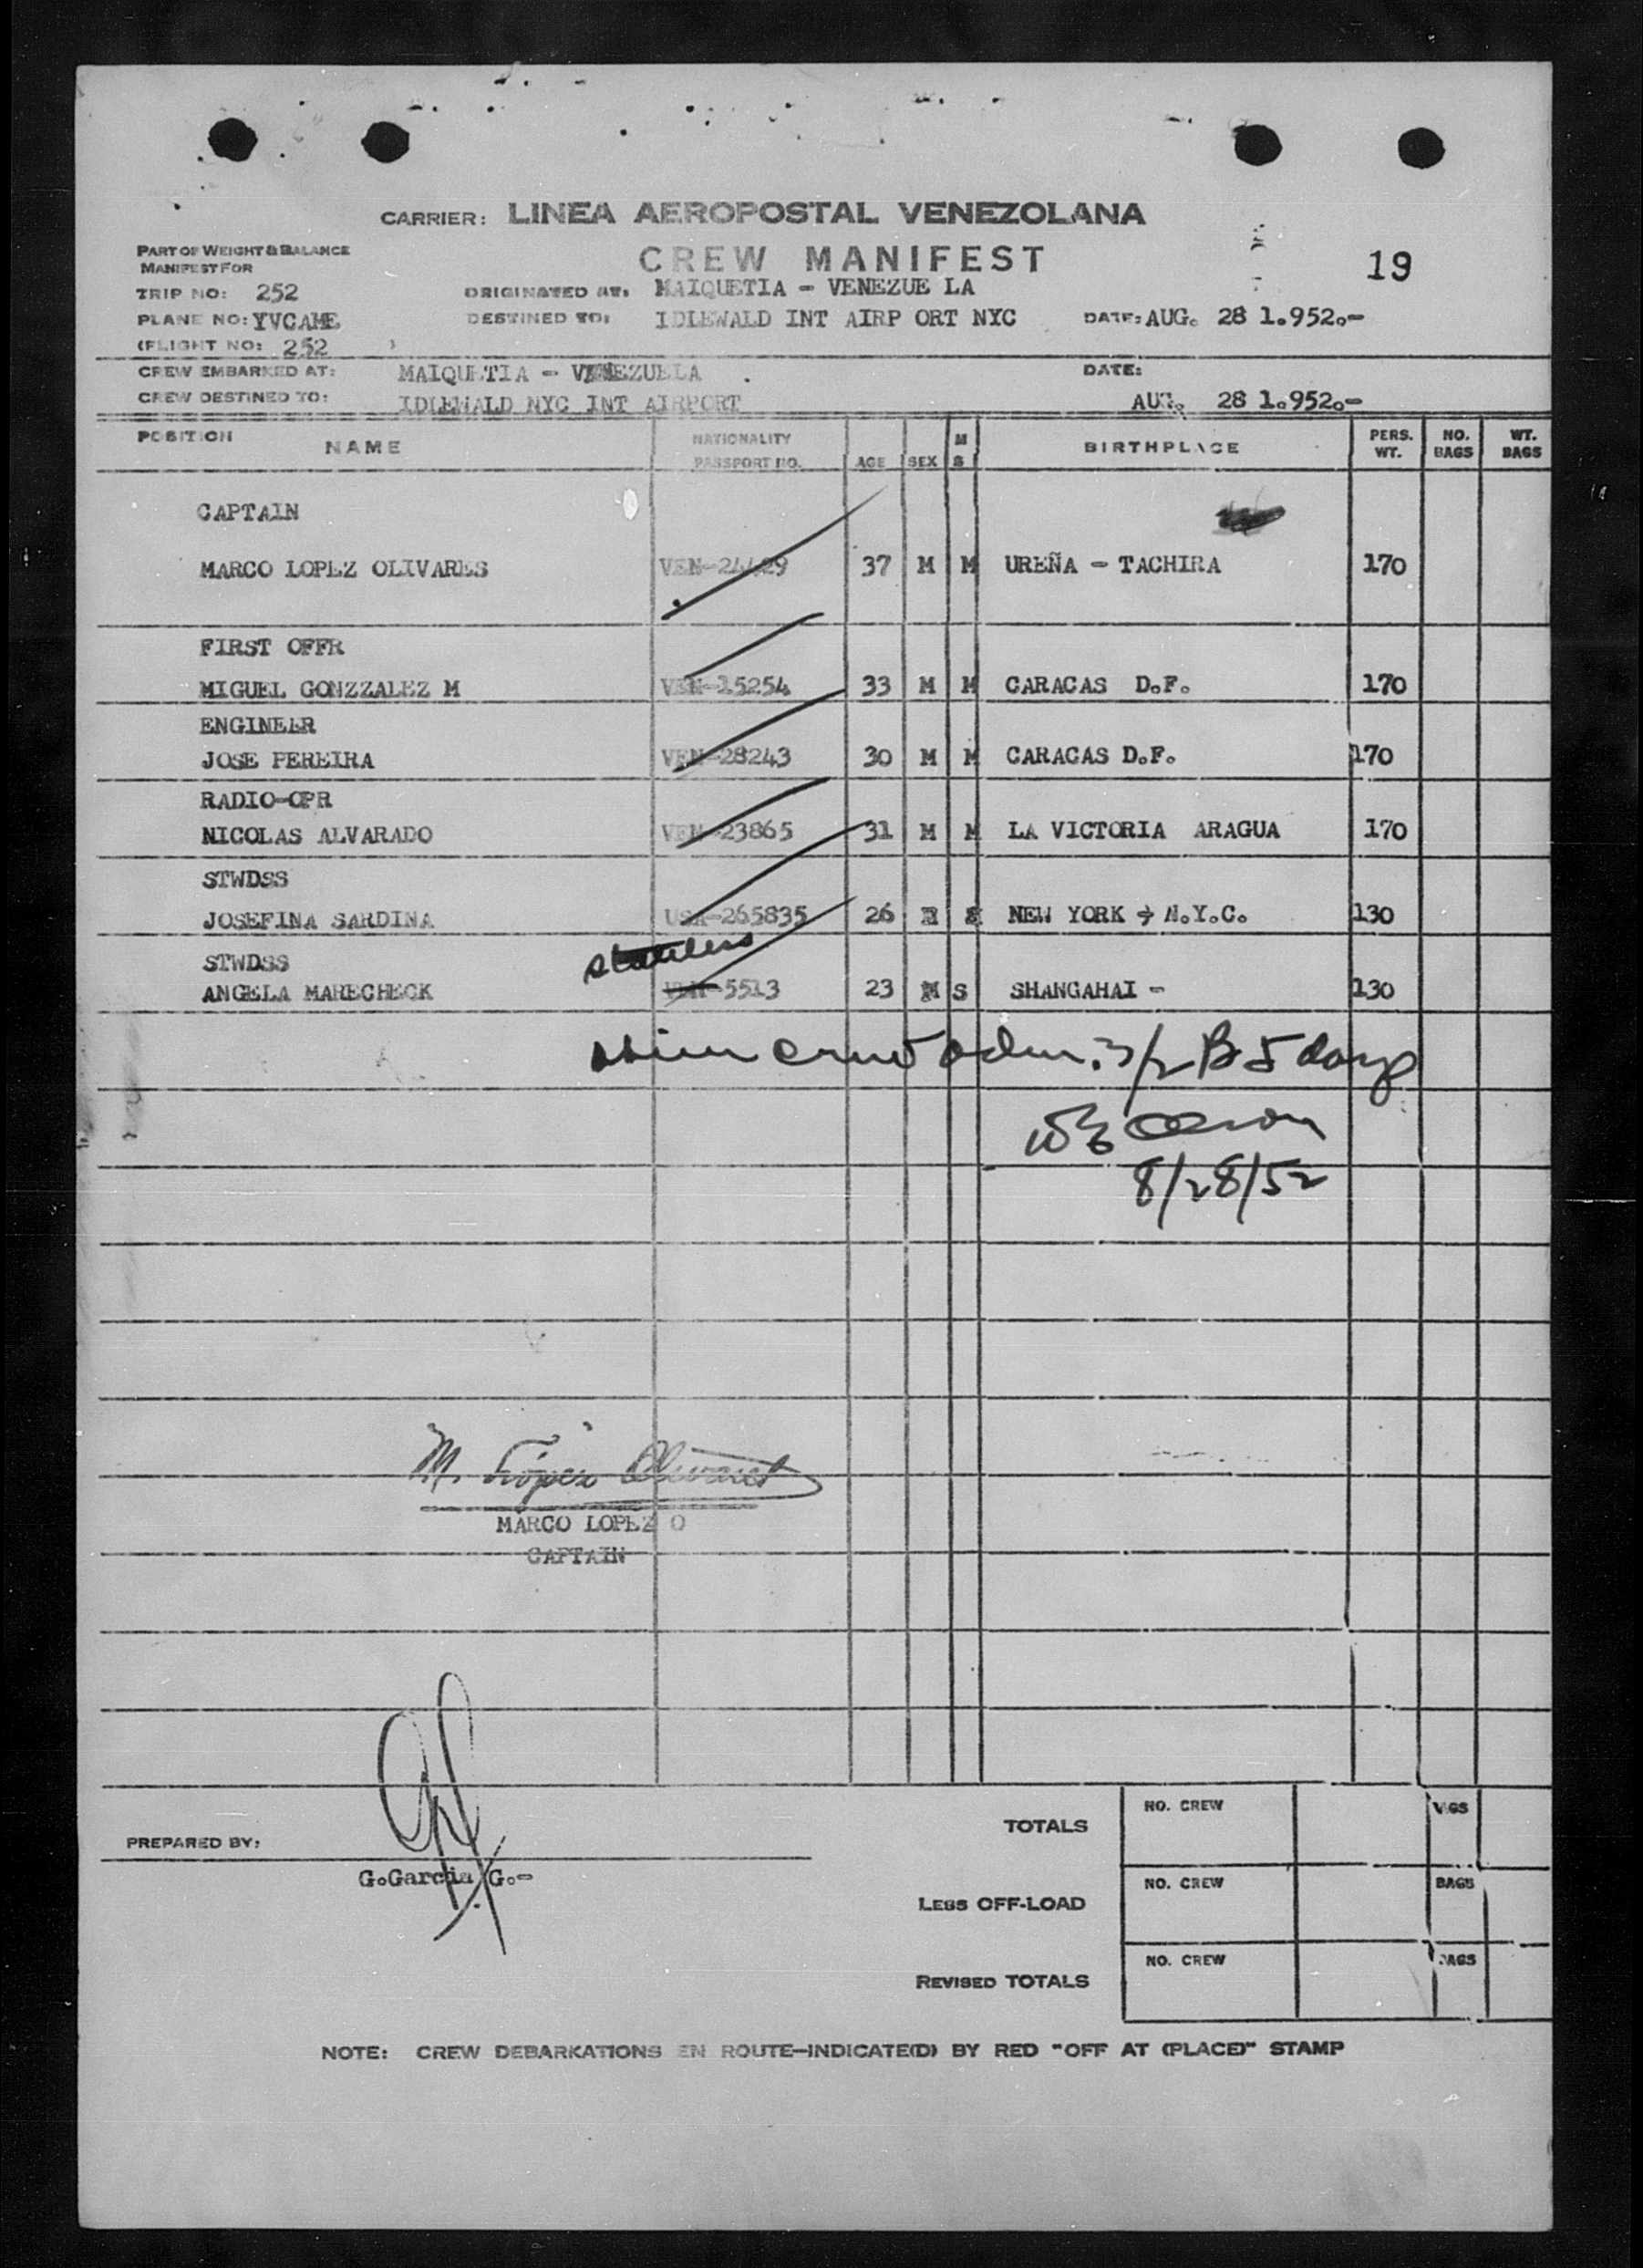 CARRIER: LINEA AEROPOSTAL VENEZOLANA
PART OF WEIGHT & BALANCE
MANIFEST FOR
CREW MANIFEST
19
TRIP NO: 252
ORIGINATED AT: MAIQUETIA - VENEZUE LA
PLANE NO: YVCAME
DESTINED TO: IDLEWALD INT AIRP ORT NYC
DATE: AUG. 28 1.952.-
(FLIGHT NO: 252 )
CREW EMBARKED AT: MAIQUETIA - VENEZUELA .
DATE:
CREW DESTINED TO: IDLEWALD NYC INT AIRPORT
AUG. 28 1.952.-
POSITION NAME NATIONALITY PASSPORT NO. AGE SEX M S BIRTHPLACE PERS. WT. NO. BAGS WT. BAGS
CAPTAIN
MARCO LOPEZ OLIVARES VEN-24429 37 M M UREÑA - TACHIRA 170
FIRST OFFR
MIGUEL GONZZALEZ M VEN-15254 33 M M CARACAS D.F. 170
ENGINEER
JOSE PEREIRA VEN-28243 30 M M CARACAS D.F. 170
RADIO-OPR
NICOLAS ALVARADO VEN-23865 31 M M LA VICTORIA ARAGUA 170
STWDSS
JOSEFINA SARDINA USA-265835 26 NEW YORK - N.Y.C. 130
stateless
STWDSS
ANGELA MARECHECK VEN-5513 23 M S SHANGAHAI - 130
alien crew adm. 3/2 B 5 days
8/28/52
M. López Olivares
MARCO LOPEZ O
CAPTAIN
PREPARED BY:
G.Garcia G.-
TOTALS NO. CREW BAGS
LESS OFF-LOAD NO. CREW BAGS
REVISED TOTALS NO. CREW BAGS
NOTE: CREW DEBARKATIONS EN ROUTE-INDICATE(D) BY RED "OFF AT (PLACE)" STAMP